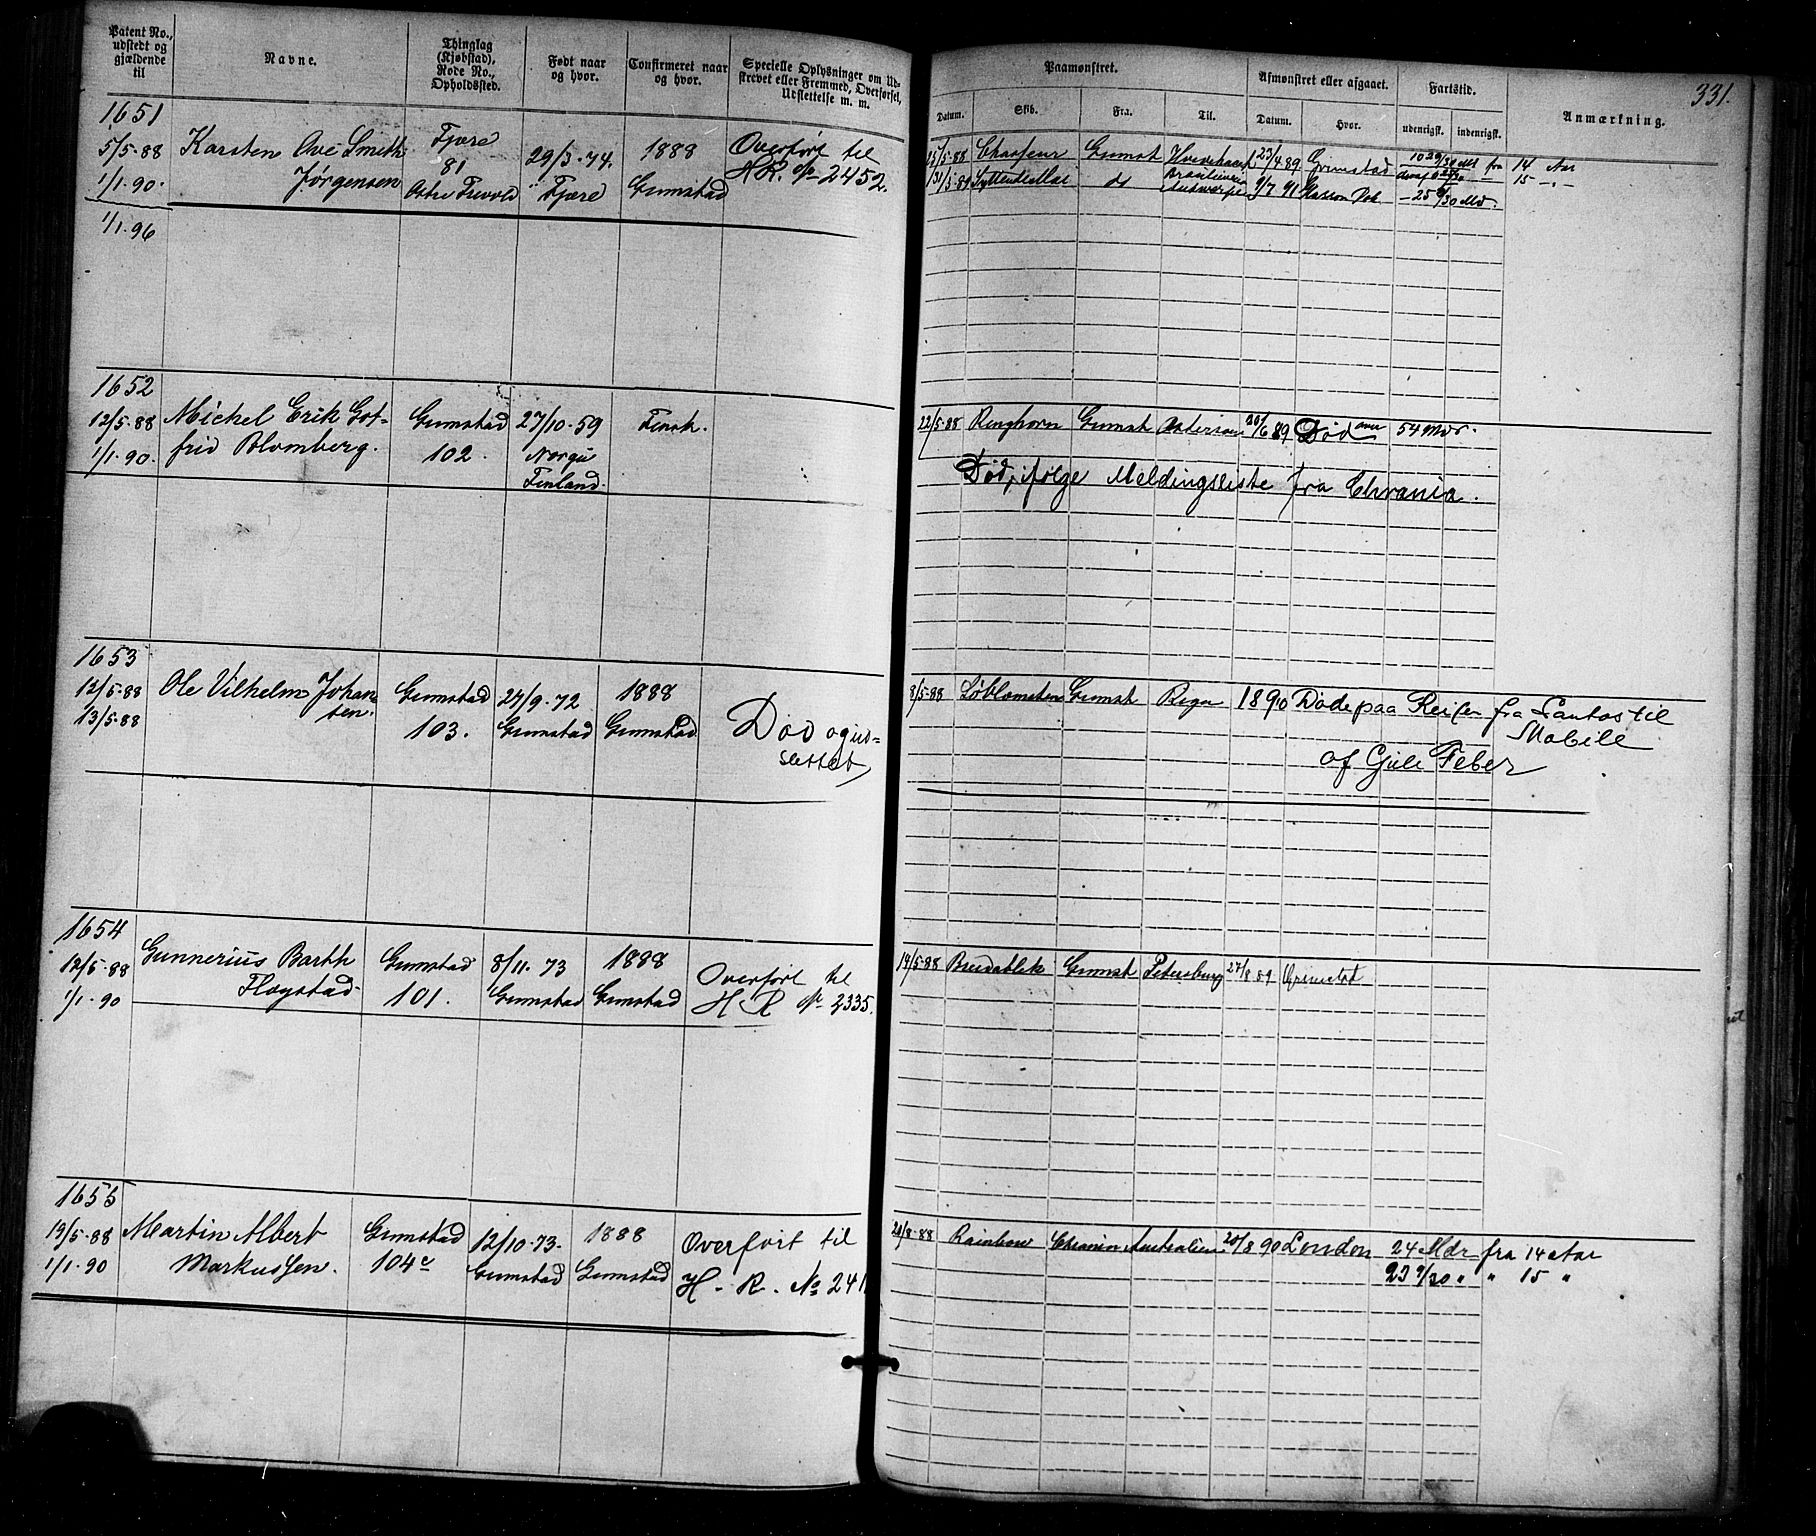 Patent No., udstedt og gjældende til
Navne.
Thinglag (Kjøbstad), Rode No., Opholdssted.
Født naar og hvor.
Confirmeret naar og hvor.
Specielle Oplysninger om Udskrevet eller Fremmed, Overførsel, Udslettelse m. m.
Paamønstret.
Datum.
Skib.
Fra.
Til.
Afmønstret eller afgaaet.
Datum.
Hvor.
Fartstid.
udenrigsk.
indenrigsk.
Anmærkning.
331.
1651
5/5-88
1/1-90.
1/1-96
Karsten Ove Smith
Jørgensen
Fjære
81
29/3-74.
Fjære
1888
Grimstad
Overført til
H.R. No 2452.
15/5-88 Chasseur Grimst 23/4 89 Grimstad
31/5-89 Syttende Mai do 9/7 91
14 Aar
15 -"-
1652
12/5-88
1/1-90.
Mickel Erik Got-
frid Blomberg.
Grimstad
102.
27/10-59
Finland.
Finsk.
22/5-88 Ringhorn Grimst 20/6 89 Død 54 Mdr.
Død, ifølge Meldingsliste fra Chrania.
1653
12/5-88
13/5-88
Ole Vilhelm Johan-
sen.
Grimstad
103.
27/9-72
Grimstad
1888
Grimstad
Død og ud-
slettet
8/5-88 Grimst Riga 1890 Døde paa Reisen fra Santos til
Mobile
af Gule Feber
1654
12/5-88
1/1-90
Gunnerius Barth
Flagstad
Grimstad
101.
8/11-73
Grimstad
1888
Grimstad
Overført til
H. R No 2335.
19/5-88 Breidablik Grimst Petersburg 27/8 89 Grimstad
1655
19/5-88
1/1-90
Martin Albert
Markussen.
Grimstad
104c
12/10-73-
Grimstad
1888
Grimstad
Overført til
H. R. No 241
20/8-88 Rainbow Chrania Australien 20/8 90 London 24 Mdr fra 14 Aar
23 9/30 " " 15 "